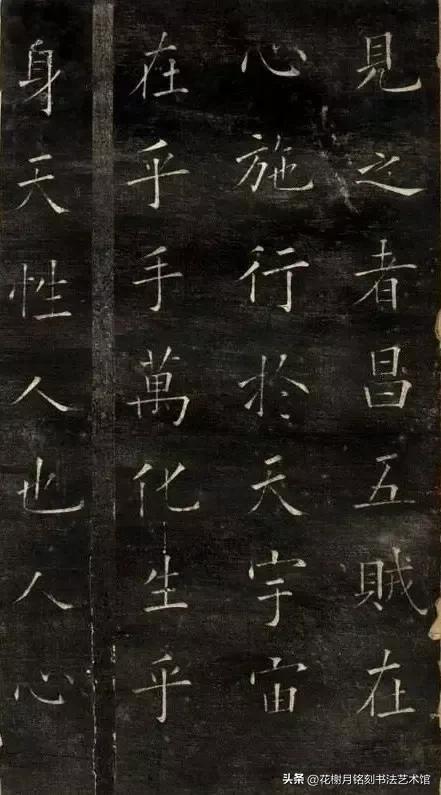 見之者昌五賊在
心施行於天宇宙
在乎手萬化生乎
身天性人也人心
头条 @花樹月铭刻书法艺术馆